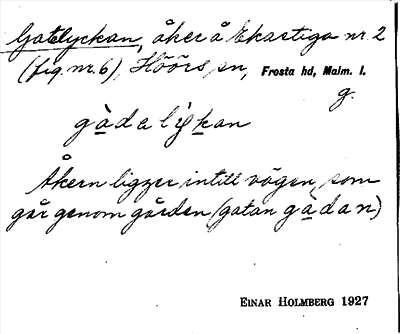 Gatelyckan, åker å Ekastiga nr. 2
(fig. nr. 6), Höörs sn, Frosta hd, Malm. l.
g.
gàdalykan
Åkern ligger intill vägen, som
går genom gården (gatan gàdan)
EINAR HOLMBERG 1927